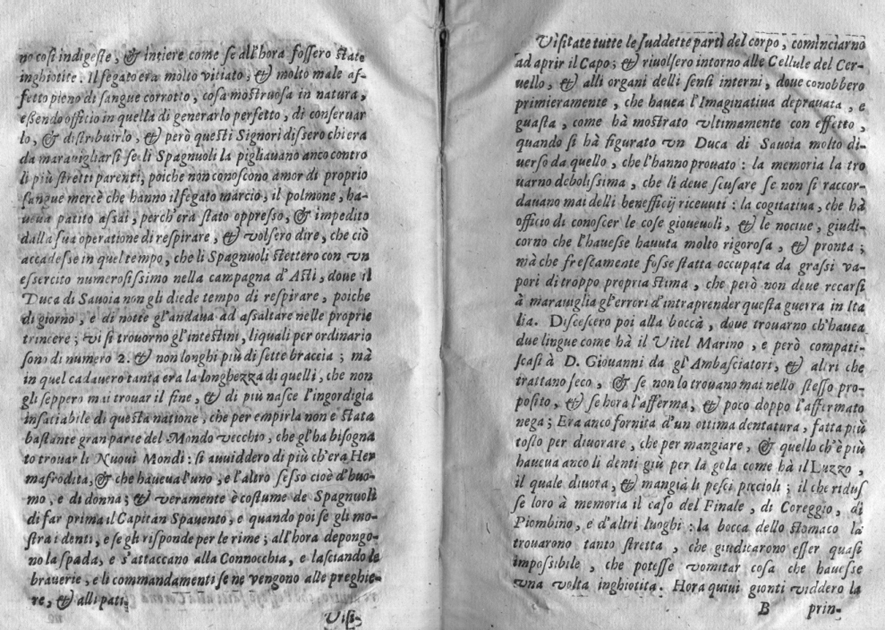 no così indigeste, & intiere come se all'hora fossero state
inghiotite. Il fegato era molto vitiato, & molto male af-
fetto pieno di sangue corrotto, cosa mostruosa in natura,
eßendo officio in quella di generarlo perfetto, di conseruar
lo, & distribuirlo, & però questi Signori dissero chi era
da marauigliarsi se li Spagnuoli la pigliauano anco contro
li più stretti parenti, poiche non conoscono amor di proprio
sangue mercè che hanno il fegato marcio; il polmone, ha-
ueua patito assai, perch'era stato oppresso, & impedito
dalla sua operatione di respirare, & volsero dire, che ciò
accadesse in quel tempo, che li Spagnuoli stettero con vn
essercito numerosissimo nella campagna d'Asti, doue il
Duca di Sauoia non gli diede tempo di respirare, poiche
di giorno, e di notte gl'andaua ad assaltare nelle proprie
trincere; vi si trouorno gl'intestini, li quali per ordinario
sono di numero 2. & non longhi più di sette braccia; mà
in quel cadauero tanta era la longhezza di quelli, che non
gli seppero mai trouar il fine, & di più nasce l'ingordigia
insatiabile di questa natione, che per empirla non è stata
bastante gran parte del Mondo vecchio, che gl'ha bisogna
to trouar li Nuoui Mondi: si auuiddero di più ch'era Her
mafrodita, & che haueua l'uno, e l'altro sesso cioè d'huo-
mo, e di donna; & veramente è costume de Spagnuoli
di far prima il Capitan Spauento, e quando poi se gli mo-
stra i denti, e se gli risponde per le rime; all'hora depongo-
no la spada, e s'attaccano alla Connocchia, e lasciando le
brauerie, e li commandamenti se ne vengono alle preghie-
re, & alli pati
Visi-
Visitate tutte le suddette parti del corpo, cominciarno
ad aprir il Capo; & riuolsero intorno alle Cellule del Cer-
uello, & alli organi delli sensi interni, doue conobbero
primieramente, che hauea l'Imaginatiua deprauata, e
guasta, come hà mostrato vltimamente con effetto,
quando si hà figurato vn Duca di Sauoia molto di-
uerso da quello, che l'hanno prouato: la memoria la tro
uarno debolissima, che li deue scusare se non si raccor-
dauano mai delli benefficij riceuuti: la cogitatiua, che hà
officio di conoscer le cose gioueuoli, & le nociue, giudi-
corno che l'hauesse hauuta molto rigorosa, & pronta;
mà che frescamente fosse statta occupata da grassi va-
pori di troppo propria stima, che però non deue reccarsi
à marauiglia gl'errori d'intraprender questa guerra in Ita
lia. Discesero poi alla boccà, doue trouarno ch'hauea
due lingue come hà il Vitel Marino, e però compati-
scasi à D. Giouanni da gl'Ambasciatori, & altri che
trattano seco, & se non lo trouano mai nello stesso pro-
posito, & se hora l'afferma, & poco doppo l'affermato
nega; Era anco fornita d'un ottima dentatura, fatta più
tosto per diuorare, che per mangiare, & quello ch'è più
haueua anco li denti giù per la gola come hà il Luzzo,
il quale diuora, & mangia li pesci piccioli; il che ridus
se loro à memoria il caso del Finale, di Coreggio, di
Piombino, e d'altri luoghi: la bocca dello stomaco la
trouarono tanto stretta, che giudicarono esser quasi
impossibile, che potesse vomitar cosa che hauesse
vna volta inghiotita. Hora quiui gionti viddero la
B prin-